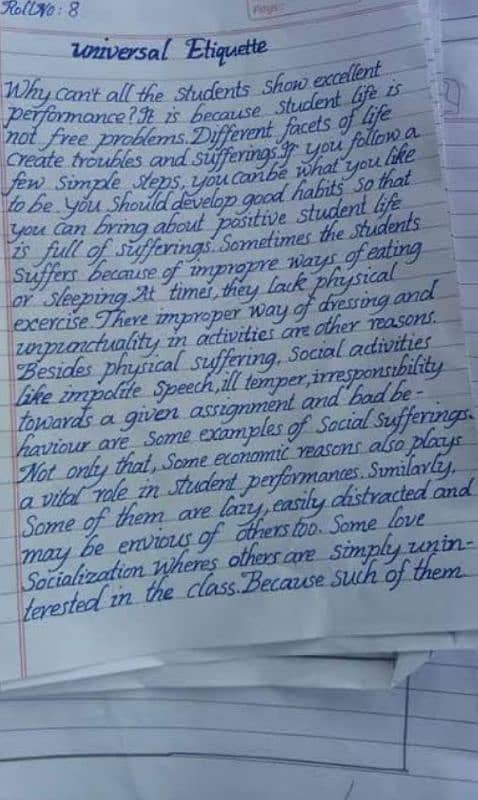 Roll No: 8
Page:
universal Etiquette
Why can't all the students show excellent
performance? It is because student life is
not free problems. Different facets of life
create troubles and sufferings. If you follow a
few simple steps, you can be what you like
to be. You should develop good habits so that
you can bring about positive student life
is full of sufferings. Sometimes the students
suffers because of impropre ways of eating
or sleeping. At times, they lack physical
exercise. There improper way of dressing and
unpunctuality in activities are other reasons.
Besides physical suffering, Social activities
like impolite speech, ill temper, irresponsibility
towards a given assignment and bad be-
haviour are some examples of Social Sufferings.
Not only that, Some economic reasons also plays
a vital role in student performances. Similarly,
Some of them are lazy, easily distracted and
may be envious of others too. Some love
Socialization wheres others are simply unin-
terested in the class. Because such of them